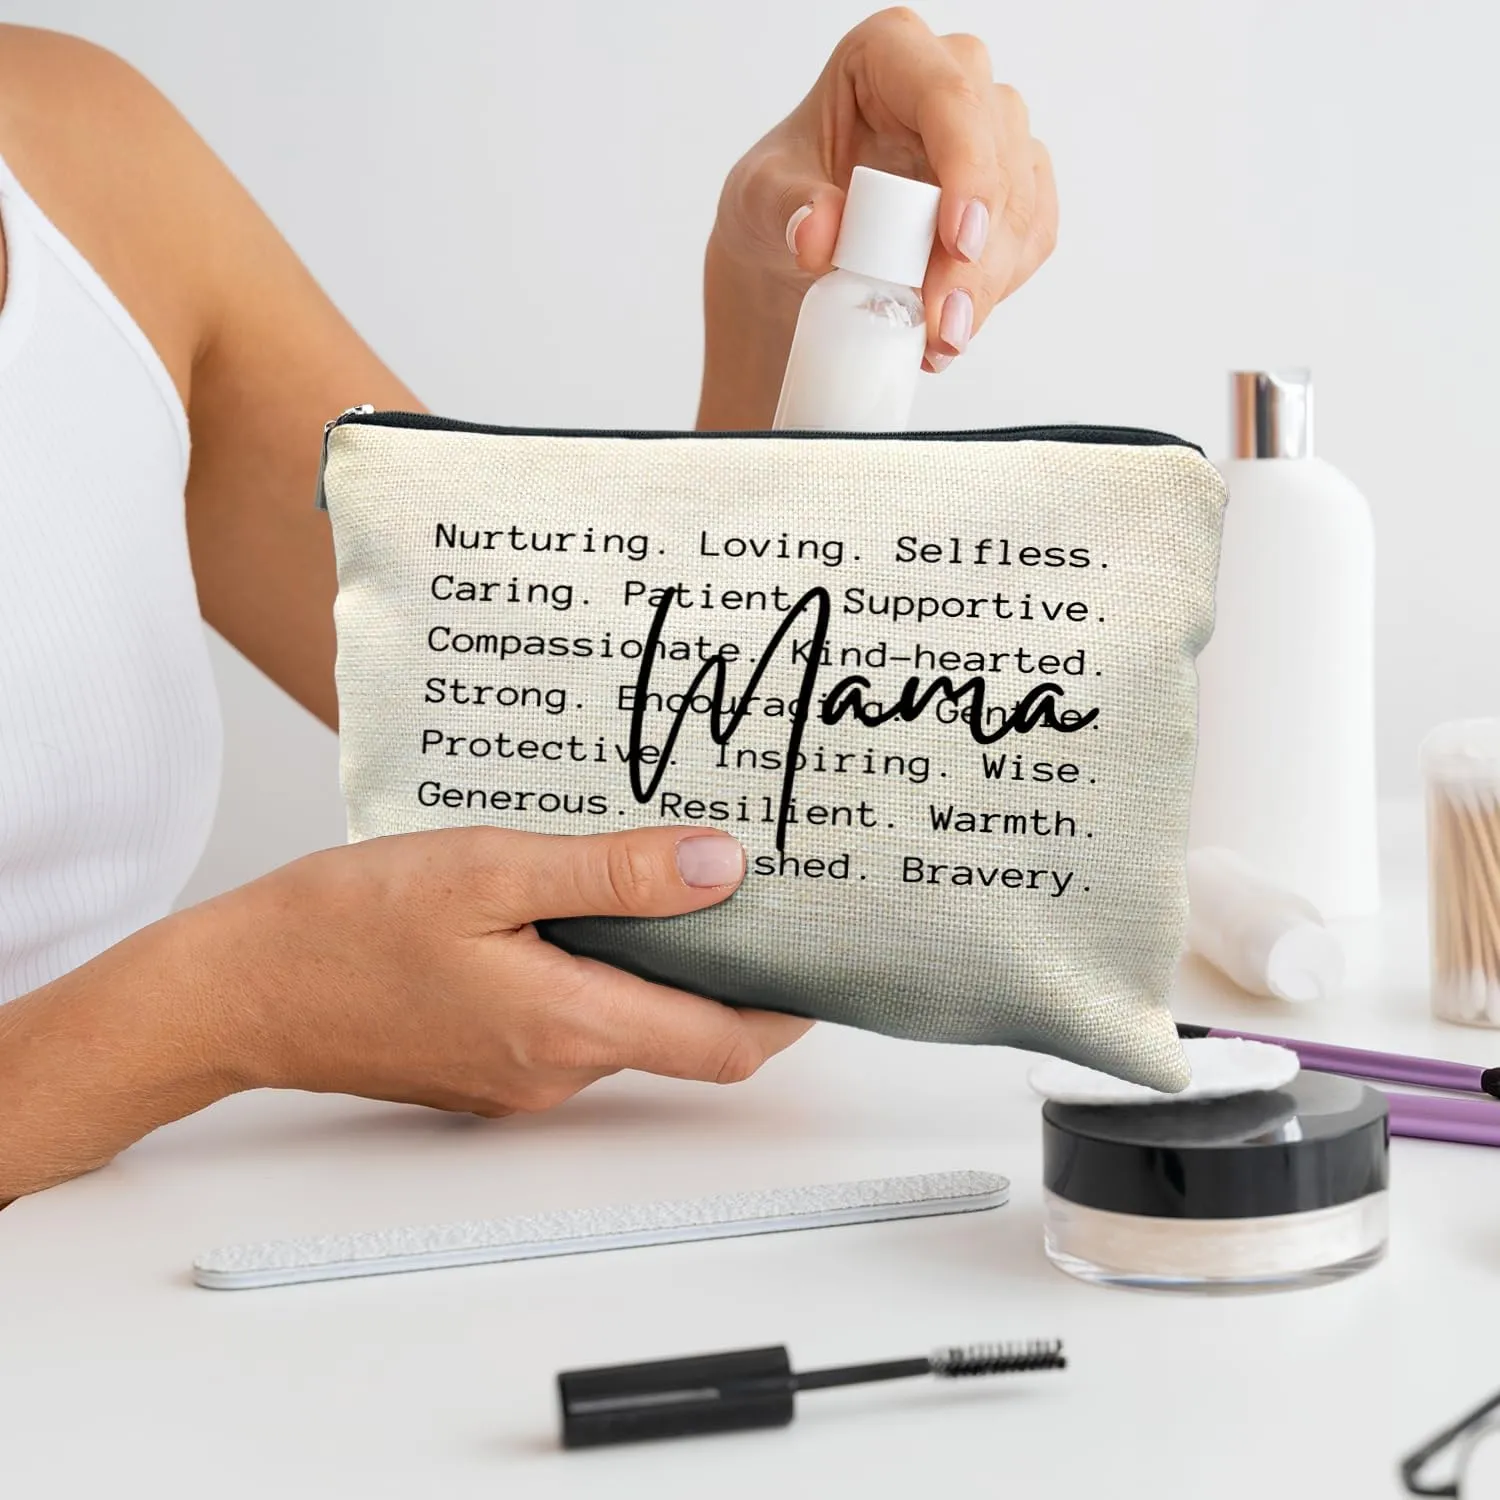 Nurturing. Loving. Selfless.
Caring. Patient. Supportive.
Compassionate. Kind-hearted.
Strong. Encouraging. Gentle.
Protective. Inspiring. Wise.
Generous. Resilient. Warmth.
Bravery.
Mama